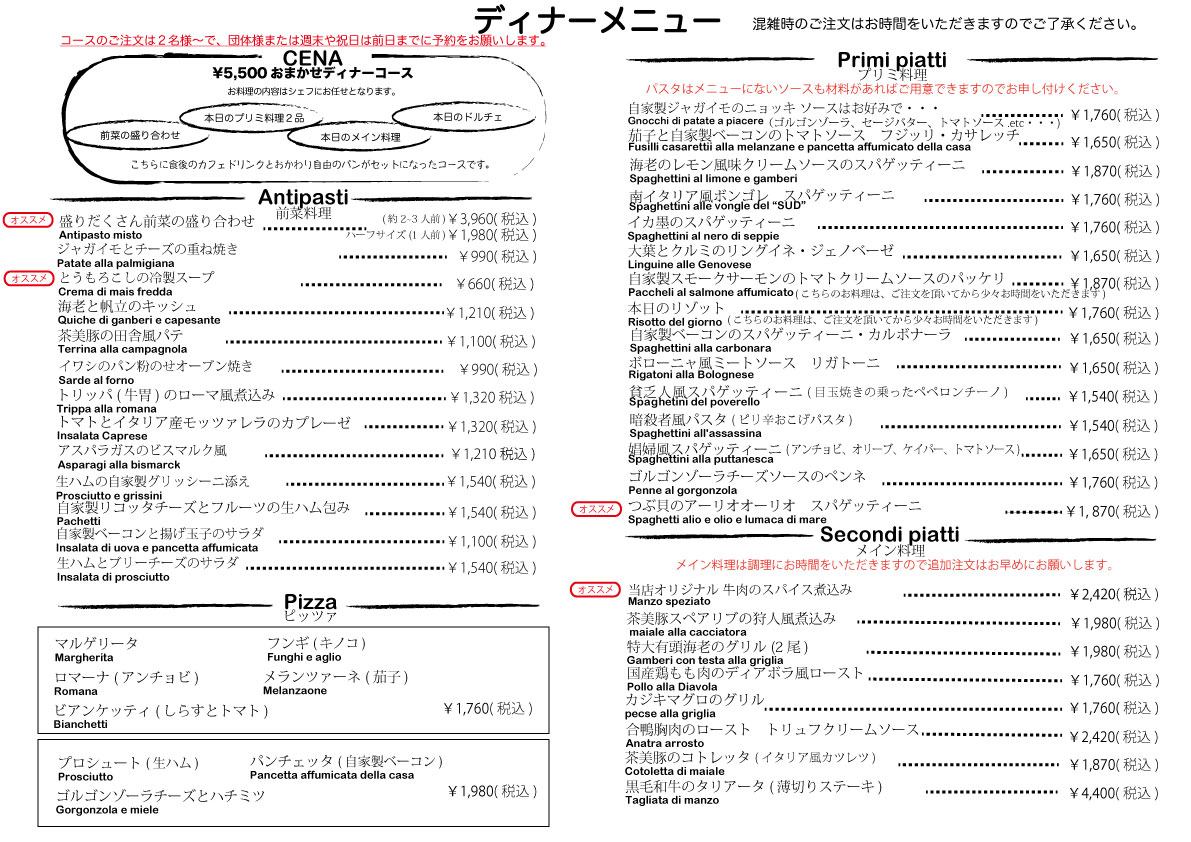 ディナーメニュー
混雑時のご注文はお時間をいただきますのでご了承ください。
コースのご注文は２名様～で、団体様または週末や祝日は前日までに予約をお願いします。
CENA
¥5,500 おまかせディナーコース
お料理の内容はシェフにお任せとなります。
前菜の盛り合わせ
本日のプリミ料理２品
本日のメイン料理
本日のドルチェ
こちらに食後のカフェドリンクとおかわり自由のパンがセットになったコースです。
Antipasti
前菜料理
オススメ 盛りだくさん前菜の盛り合わせ (約2-3人前)￥3,960(税込)
Antipasto misto ハーフサイズ(1人前)￥1,980(税込)
ジャガイモとチーズの重ね焼き ￥990(税込)
Patate alla palmigiana
オススメ とうもろこしの冷製スープ ￥660(税込)
Crema di mais fredda
海老と帆立のキッシュ ￥1,210(税込)
Quiche di ganberi e capesante
茶美豚の田舎風パテ ￥1,100(税込)
Terrina alla campagnola
イワシのパン粉のせオーブン焼き ￥990(税込)
Sarde al forno
トリッパ(牛胃)のローマ風煮込み ￥1,320 税込)
Trippa alla romana
トマトとイタリア産モッツァレラのカプレーゼ ￥1,320(税込)
Insalata Caprese
アスパラガスのビスマルク風 ￥1,210 税込)
Asparagi alla bismarck
生ハムの自家製グリッシーニ添え ￥1,540(税込)
Prosciutto e grissini
自家製リコッタチーズとフルーツの生ハム包み ￥1,540(税込)
Pachetti
自家製ベーコンと揚げ玉子のサラダ ￥1,100(税込)
Insalata di uova e pancetta affumicata
生ハムとブリーチーズのサラダ ￥1,540(税込)
Insalata di prosciutto
Pizza
ピッツァ
マルゲリータ フンギ(キノコ)
Margherita Funghi e aglio
ロマーナ(アンチョビ) メランツァーネ(茄子)
Romana Melanzaone
ビアンケッティ(しらすとトマト) ￥1,760(税込)
Bianchetti
プロシュート(生ハム) パンチェッタ(自家製ベーコン)
Prosciutto Pancetta affumicata della casa
ゴルゴンゾーラチーズとハチミツ ￥1,980(税込)
Gorgonzola e miele
Primi piatti
プリミ料理
パスタはメニューにないソースも材料があればご用意できますのでお申し付けください。
自家製ジャガイモのニョッキ ソースはお好みで・・・ ￥1,760(税込)
Gnocchi di patate a piacere (ゴルゴンゾーラ、セージバター、トマトソース.etc・・・)
茄子と自家製ベーコンのトマトソース　フジッリ・カサレッチ ￥1,650(税込)
Fusilli casarettii alla melanzane e pancetta affumicato della casa
海老のレモン風味クリームソースのスパゲッティーニ ￥1,870(税込)
Spaghettini al limone e gamberi
南イタリア風ボンゴレ　スパゲッティーニ ￥1,760(税込)
Spaghettini alle vongle del “SUD”
イカ墨のスパゲッティーニ ￥1,760(税込)
Spaghettini al nero di seppie
大葉とクルミのリングイネ・ジェノベーゼ ￥1,650(税込)
Linguine alle Genovese
自家製スモークサーモンのトマトクリームソースのパッケリ ￥1,870(税込)
Paccheli al salmone affumicato (こちらのお料理は、ご注文を頂いてから少々お時間をいただきます)
本日のリゾット ￥1,760(税込)
Risotto del giorno (こちらのお料理は、ご注文を頂いてから少々お時間をいただきます)
自家製ベーコンのスパゲッティーニ・カルボナーラ ￥1,650(税込)
Spaghettini alla carbonara
ボローニャ風ミートソース　リガトーニ ￥1,650(税込)
Rigatoni alla Bolognese
貧乏人風スパゲッティーニ(目玉焼きの乗ったペペロンチーノ) ￥1,540(税込)
Spaghetini del poverello
暗殺者風パスタ(ピリ辛おこげパスタ) ￥1,540(税込)
Spaghettini all'assassina
娼婦風スパゲッティーニ(アンチョビ、オリーブ、ケイパー、トマトソース) ￥1,650(税込)
Spaghettini alla puttanesca
ゴルゴンゾーラチーズソースのペンネ ￥1,760(税込)
Penne al gorgonzola
オススメ つぶ貝のアーリオオーリオ　スパゲッティーニ ￥1,870(税込)
Spaghetti alio e olio e lumaca di mare
Secondi piatti
メイン料理
メイン料理は調理にお時間をいただきますので追加注文はお早めにお願いします。
オススメ 当店オリジナル 牛肉のスパイス煮込み ￥2,420(税込)
Manzo speziato
茶美豚スペアリブの狩人風煮込み ￥1,980(税込)
maiale alla cacciatora
特大有頭海老のグリル(2尾) ￥1,980(税込)
Gamberi con testa alla griglia
国産鶏もも肉のディアボラ風ロースト ￥1,760(税込)
Pollo alla Diavola
カジキマグロのグリル ￥1,760(税込)
pecse alla griglia
合鴨胸肉のロースト　トリュフクリームソース ￥2,420(税込)
Anatra arrosto
茶美豚のコトレッタ(イタリア風カツレツ) ￥1,870(税込)
Cotoletta di maiale
黒毛和牛のタリアータ(薄切りステーキ) ￥4,400(税込)
Tagliata di manzo